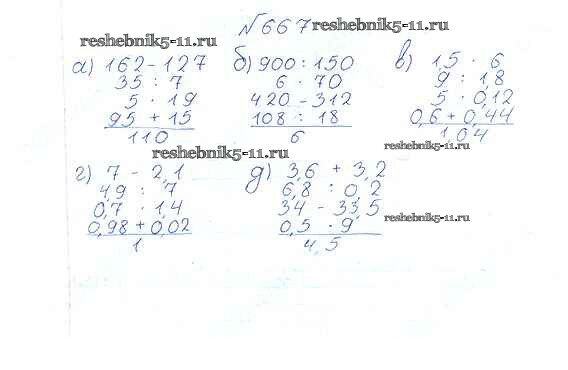 №667
reshebnik5-11.ru
а) 162-127
35 : 7
5 · 19
95 + 15
110
б) 900 : 150
6 · 70
420 - 312
108 : 18
6
в) 1,5 · 6
9 : 1,8
5 · 0,12
0,6 + 0,44
1,04
reshebnik5-11.ru
reshebnik5-11.ru
г) 7 - 2,1
4,9 : 7
0,7 · 1,4
0,98 + 0,02
1
д) 3,6 + 3,2
6,8 : 0,2
34 - 33,5
0,5 · 9
4,5
reshebnik5-11.ru